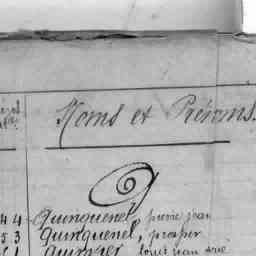 Noms et Prénoms.
Q
44 Quinquenel, pierre jean
53 Quinquenel, prosper
Quimper louis jean marie